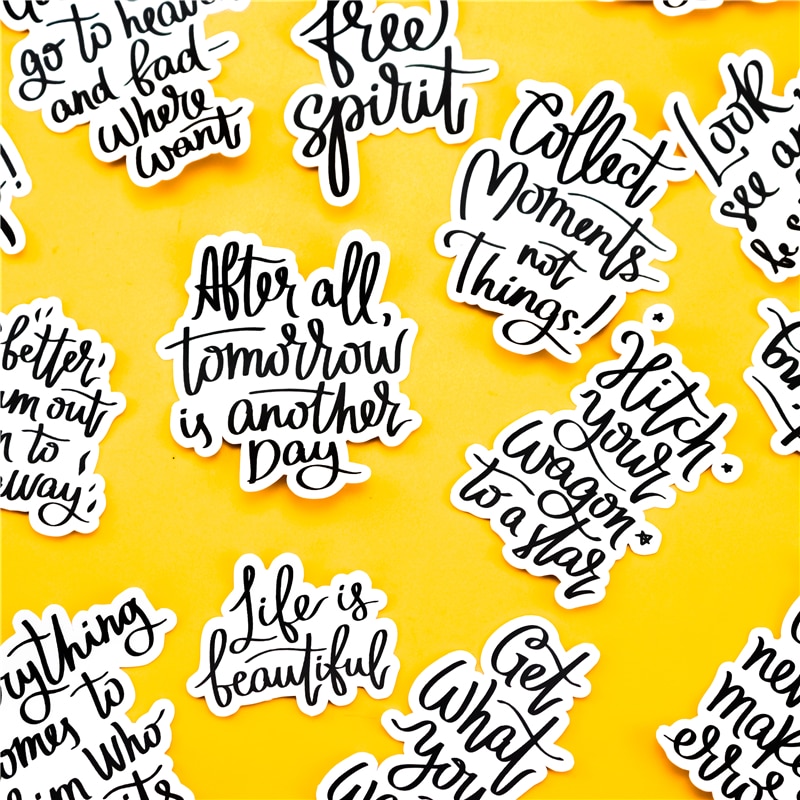 go to heaven
and bad
where
want
free
spirit
Collect
Moments
not
Things!
Look
see
After all,
tomorrow
is another
Day
better
out
to
way
Hitch
your
wagon
to a star
Life is
beautiful
to
Who
Get
What
you
make